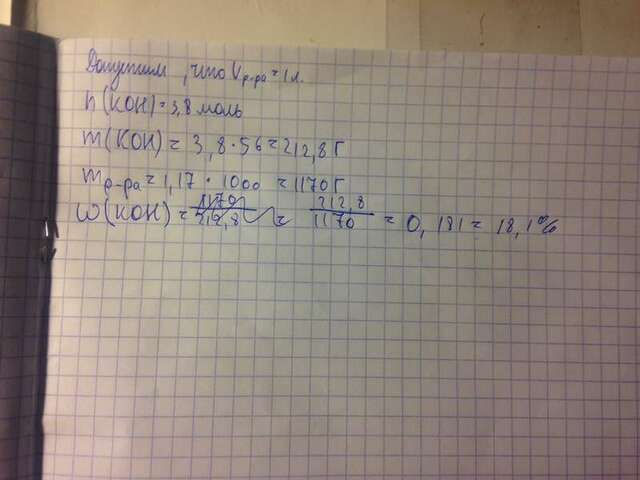 Допустим, что Vр-ра = 1л.
n(KOH) = 3,8 моль
m(KOH) = 3,8 · 56 = 212,8 г
mр-ра = 1,17 · 1000 = 1170 г
ω(KOH) = 1170/212,8 = 212,8/1170 = 0,181 = 18,1%